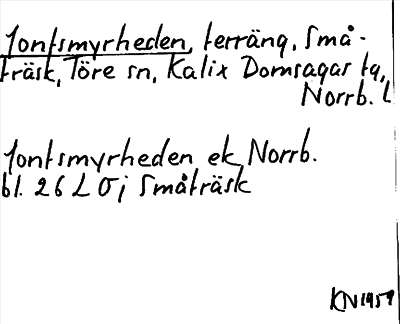 Jontsmyrheden, terräng, Små-
träsk, Töre sn, Kalix Domsagas tg,
Norrb. L
Jontsmyrheden ek Norrb.
bl. 26 L 0j Småträsk
KN 1959